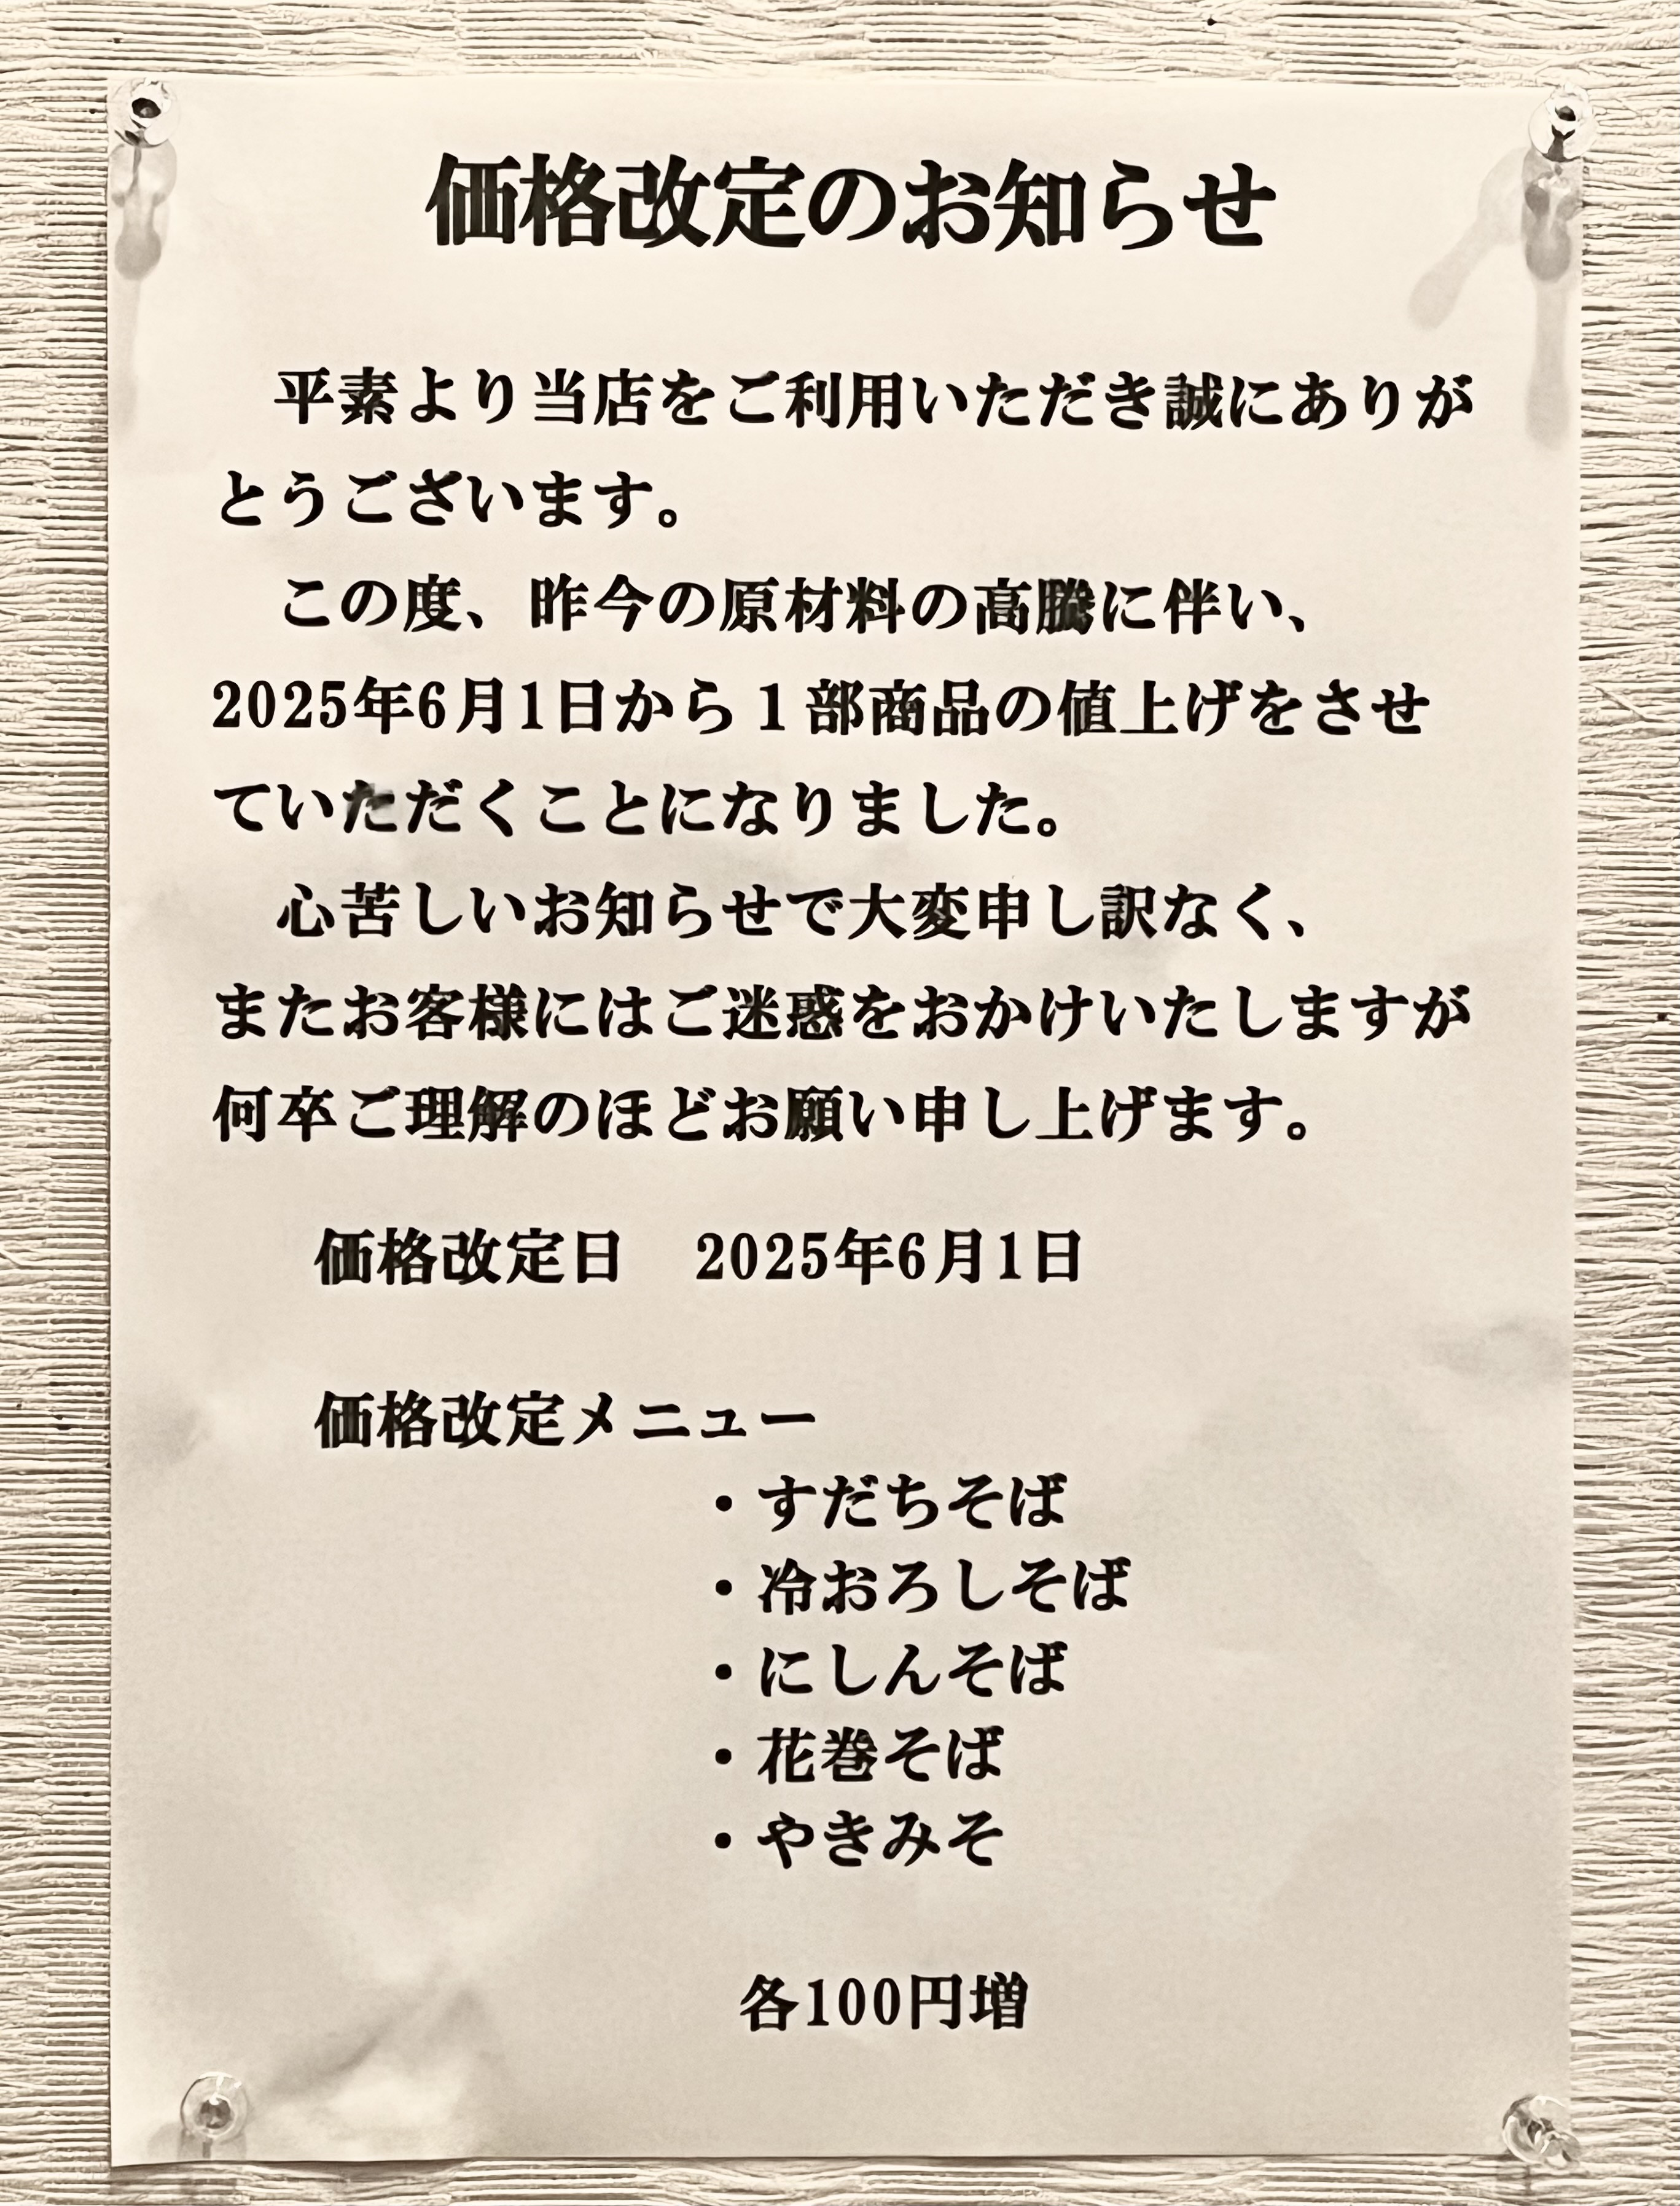 価格改定のお知らせ
平素より当店をご利用いただき誠にありが
とうございます。
この度、昨今の原材料の高騰に伴い、
2025年6月1日から１部商品の値上げをさせ
ていただくことになりました。
心苦しいお知らせで大変申し訳なく、
またお客様にはご迷惑をおかけいたしますが
何卒ご理解のほどお願い申し上げます。
価格改定日　2025年6月1日
価格改定メニュー
・すだちそば
・冷おろしそば
・にしんそば
・花巻そば
・やきみそ
各100円増